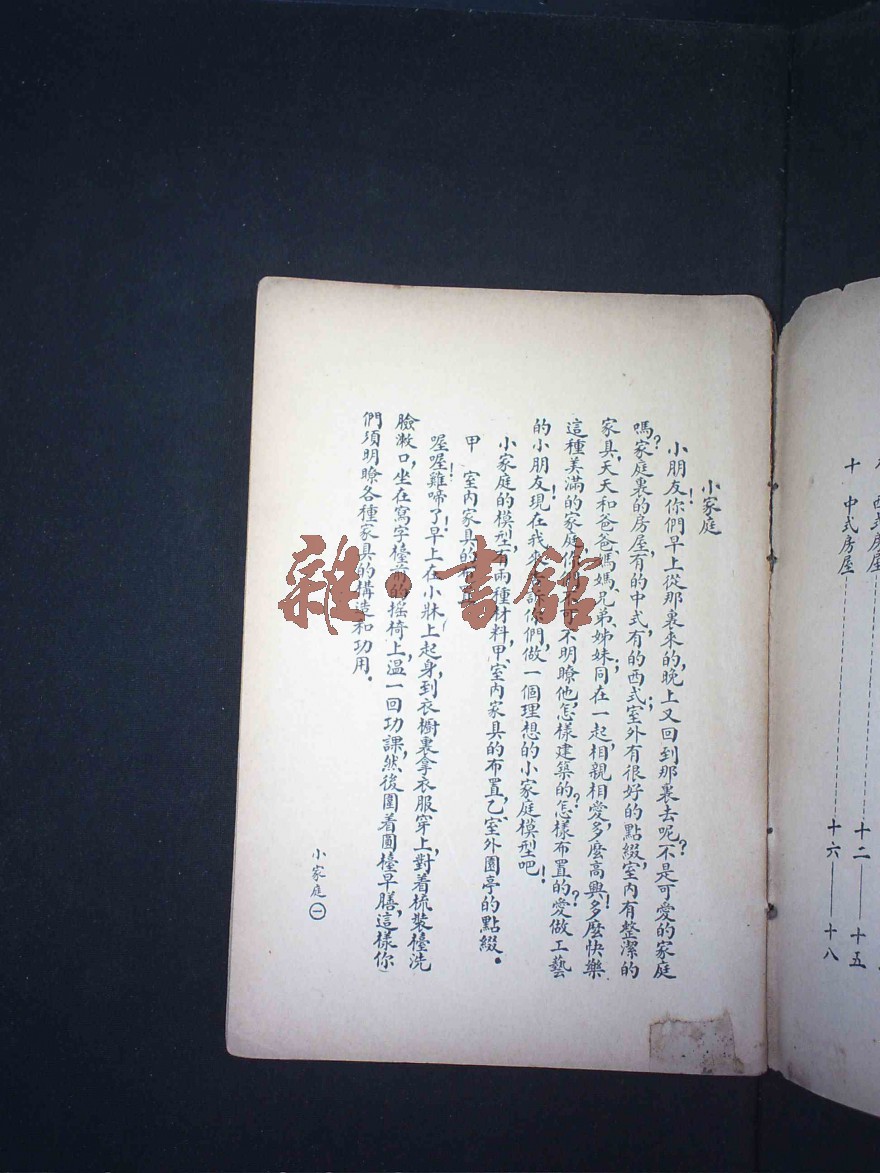 小家庭
小朋友!你們早上從那裏來的,晚上又回到那裏去呢?不是可愛的家庭
嗎?家庭裏的房屋,有的中式;有的西式;室外有很好的點綴,室內有整潔的
家具,天天和爸爸、媽媽、兄弟、姊妹同在一起,相親相愛,多麼高興!多麼快樂!
這種美滿的家庭,你們可不明瞭他,怎樣建築的?怎樣布置的?愛做工藝
的小朋友!現在我來告訴你們,做一個理想的小家庭模型吧!
小家庭的模型有兩種材料,甲、室內家具的布置,乙、室外園亭的點綴。
甲 室內家具的布置
喔喔!雞啼了!早上在小牀上起身,到衣櫥裏拿衣服穿上,對着梳裝檯洗
臉漱口,坐在寫字檯前的搖椅上,溫一回功課,然後圍着圓檯早膳,這樣你
們須明瞭各種家具的構造和功用。
小家庭 一
西式房屋
十 中式房屋
十二——十五
十六——十八
雜·書館